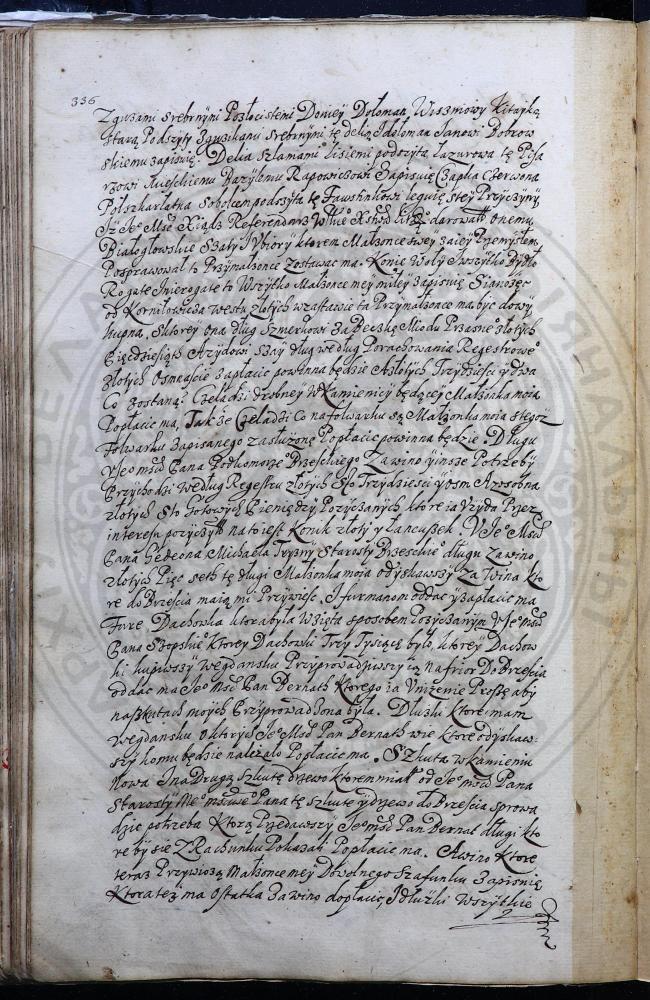 336
Zguzami srebrnymi Pozłocistemi Do niey Dołoman Wiszniowy Kitayką
starą Podszyty Zguzikami srebrnymi tę delią Idołoman Janowi Botrow
skiemu zapisuię. Delia szlamami lisiemi podszyta lazurowa tę Pisa
rzowi Mieyskiemu Bazylemu Rapowiczowi Zapisuię Czapka Czerwona
Półszkarłatna sobolcem podszyta tę leguię stey Przyczyny
Iz Je° Msc Xiądz Referendarz W° X° Lit° darował onemu
Białogłowskie Szaty Ubiory ktorem Małzonce swey zaiey Przemysłem
Posprawował to Przymałzonce zostawac ma. Konie Woły Iwszytko Bydło
Rogate Inierogate to Wszytko Małzonce mey miłey Zapisuię Sianozęc
od Korniłowicza westu złotych wzastawie ta Przymałzonce ma być dowy
kupna. Sktorey ona dług Szmerkowi Za Beczkę Miodu Przasne° złotych
Pięcdziesiąt Azydowi dług według Porachowania Regestrowe°
złotych Osmnascie Zapłacic powinna będzie Azłotych Trzydziesci ydwa
Co zostaną? Czeladzi drobney Wkamienicy będącey Małzonka moia
Popłacic ma, Tak że Czeladzi Co na folwarku są Małzonka moia stegoż
Folwarku Zapisanego zasłuzone Popłacic powinna będzie. Długu
VJe° msci Pana Podkomorze° Brzeskiego Za wino yinsze Potrzeby
Przychodzi Według Regestru złotych Sto Trzydziesci yosm Aosobna
złotych Sto Gotowych Pieniędzy Pozyczanych, ktore ia Przez
interesu pozyczył na to iest Konik złoty yłancuszek. VJe° Msci
Pana Gedeona Michała Tryzny Starosty Brzeskie° długu Zawino
złotych Pięc seth tę długi Małzonka moia odyskawszy Za Wina kto
re do Brzescia maią mi Przywiesc, Ifurmanom oddac yzapłacic ma
Fure Dachowka ktora była Wzięta sposobem Pozyczanym VJe° msci
Pana Ktorey Dachowki Trzy Tysiące było, ktorey Dachow
ki kupiwszy Wegdansku Przyprowadziwszy ią na frior Do Brzescia
oddac ma Je° Msc Pan Bernath Ktorego ia Unizenie Proszę aby
naszkutach moich Przyprowadzona była. Dłuzki ktore mam
Wegdansku oktorych Je° Msc Pan Bernath wie ktore odyskaw-
szy komu będzie nalezało Popłacic ma. Szkuta wkamieniu
Nowa Ina Drugą Szkutę drzewo ktorem miał od Je° msci Pana
Starosty Me° msciwe° Pana tę Szkutę ydrzewo do Brzescia sprowa
dzic potrzeba Ktorą Przedawszy Je° msc Pan Bernat długi kto
re by się ZRachunku Pokazali Popłacic ma. Awino Ktore
teraz Przywiozą Małzonce mey Dowolnego Szafunku Zapisuię
Ktora też ma Ostatka Za wino dopłacic, Idłuzki Wszytkie